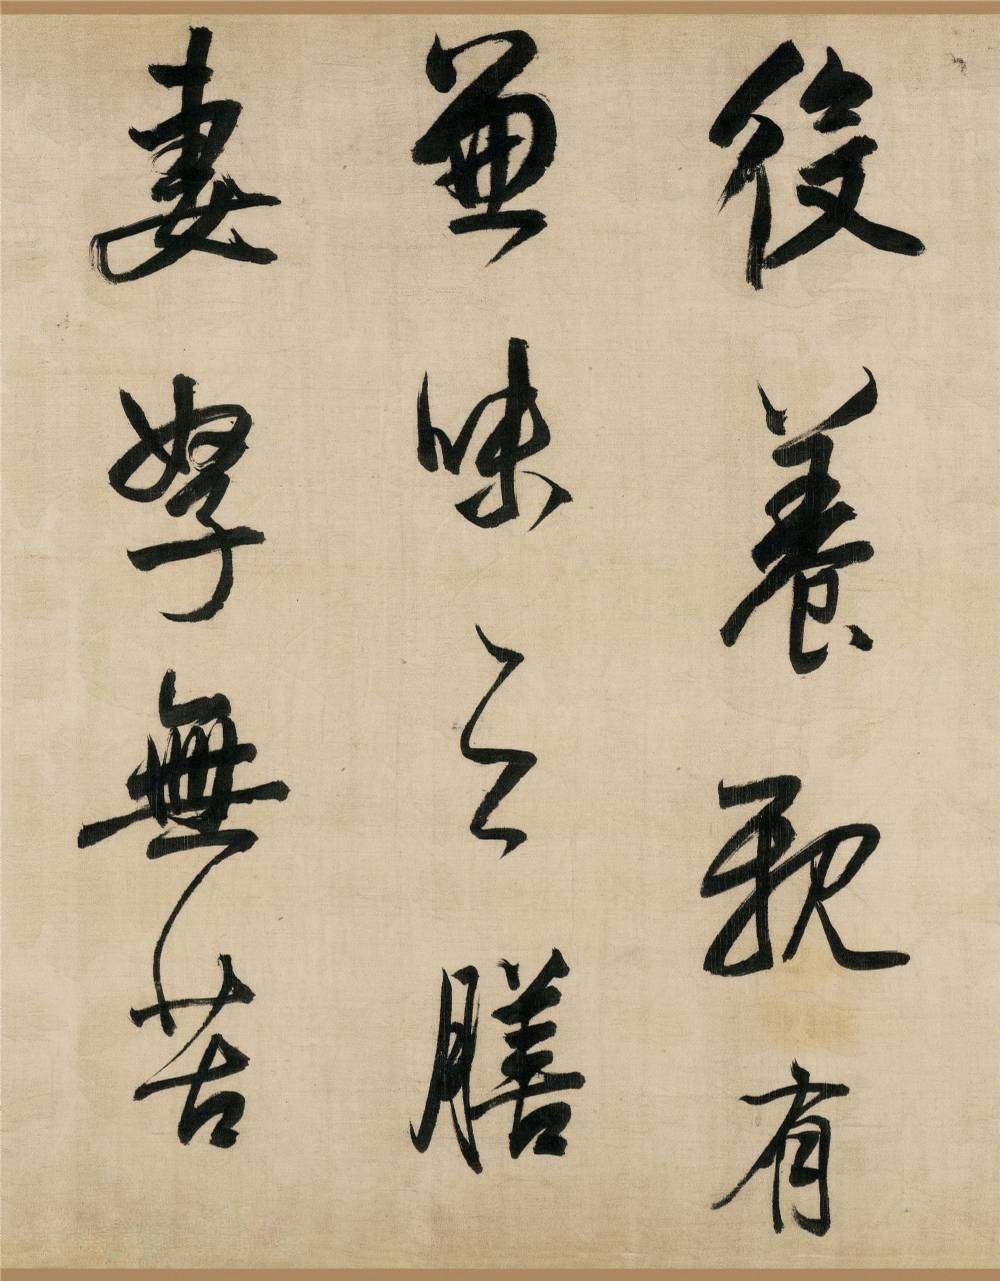 役養親有
兼味之膳
妻孥無苦